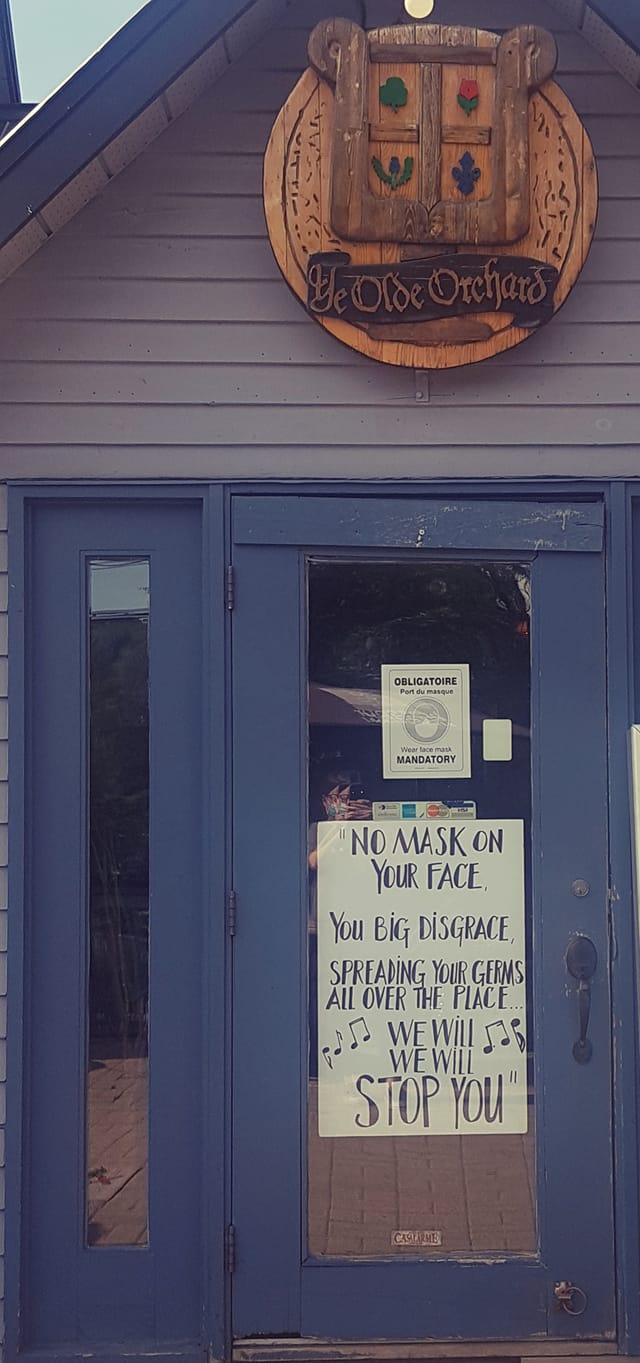 Ye Olde Orchard
OBLIGATOIRE
Port du masque
Wear face mask
MANDATORY
VISA
"NO MASK ON
YOUR FACE,
YOU BIG DISGRACE,
SPREADING YOUR GERMS
ALL OVER THE PLACE...
WE WILL
WE WILL
STOP YOU"